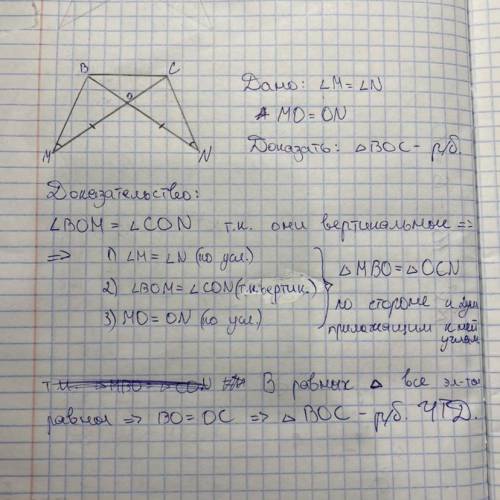 B C
O
M N
Дано: ∠M=∠N
MO=ON
Доказать: △BOC – р/б.
Доказательство:
∠BOM = ∠CON т.к. они вертикальные =>
=> 1) ∠M=∠N (по усл.)
2) ∠BOM=∠CON (т.к. вертик.)
3) MO=ON (по усл.)
△MBO=△OCN
по стороне и двум
прилежащим к ней
углам
В равных △ все эл-ты
равны => BO=OC => △BOC – р/б. ЧТД.